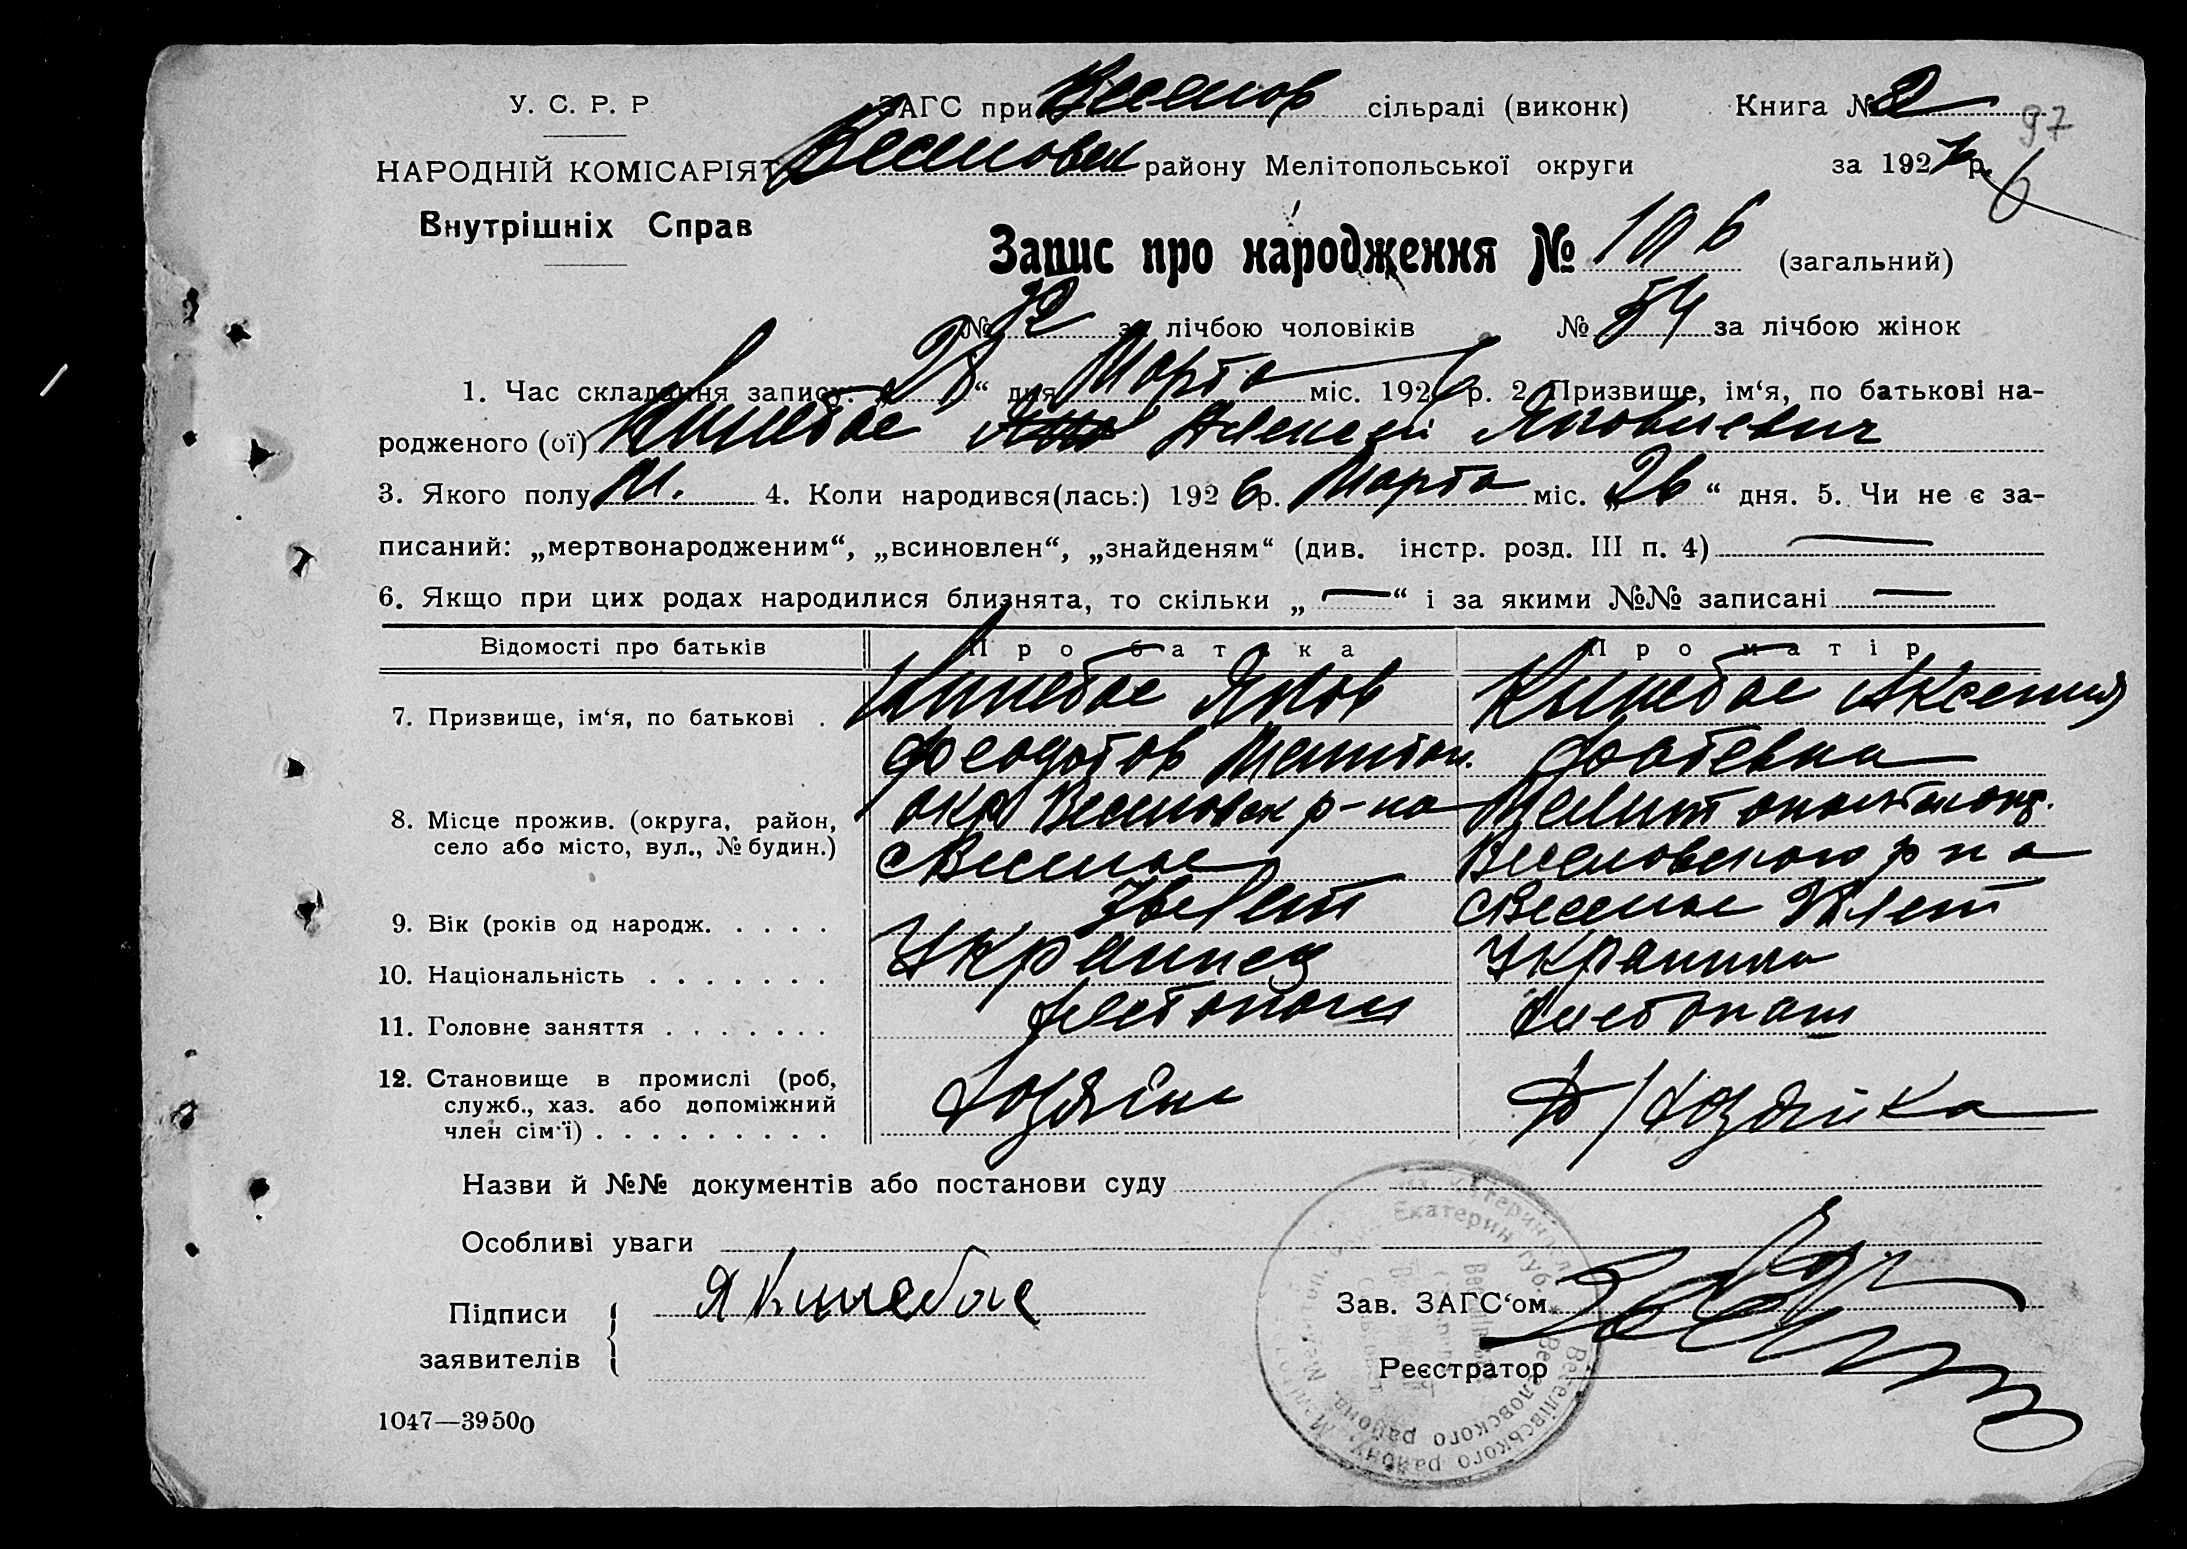 У. С. Р. Р
ЗАГС при Веселов сільраді (виконк) Книга № 2
97
НАРОДНІЙ КОМІСАРІЯТ Веселовск району Мелітопольської округи за 192 р. 6
Внутрішніх Справ
Запис про народження № 106 (загальний)
№ 32 за лічбою чоловіків № 54 за лічбою жінок
1. Час складання запису: „28“ дня Марта міс. 1926 р. 2 Призвище, ім‘я, по батькові на-
родженого (ої) Алексей Яковлевич
3. Якого полу м. 4. Коли народився(лась:) 1926 р. Марта міс. „26“ дня. 5. Чи не є за-
писаний: „мертвонародженим“, „всиновлен“, „знайденям“ (див. інстр. розд. III п. 4) —
6. Якщо при цих родах народилися близнята, то скільки „—“ і за якими №№ записані —
Відомості про батьків Про батька Про матір
7. Призвище, ім‘я, по батькові . Яков Аксения
Феодотов Мелитоп. Фотевна
8. Місце прожив. (округа, район, окр Веселовск р-на Мелитопольск окр.
село або місто, вул., № будин.) с Веселое Веселовского р на
9. Вік (років од народж. . . . . лет с Веселое лет
10. Національність . . . . . . . Украинец Украинка
11. Головне заняття . . . . . . . Хлебопаш Хлебопаш
12. Становище в промислі (роб, Хозяин Д/Хозяйка
служб., хаз. або допоміжний
член сім‘ї) . . . . . . . . .
Назви й №№ документів або постанови суду
Особливі уваги
Підписи Я
заявителів
Зав. ЗАГС‘ом
Реєстратор
1047—39500